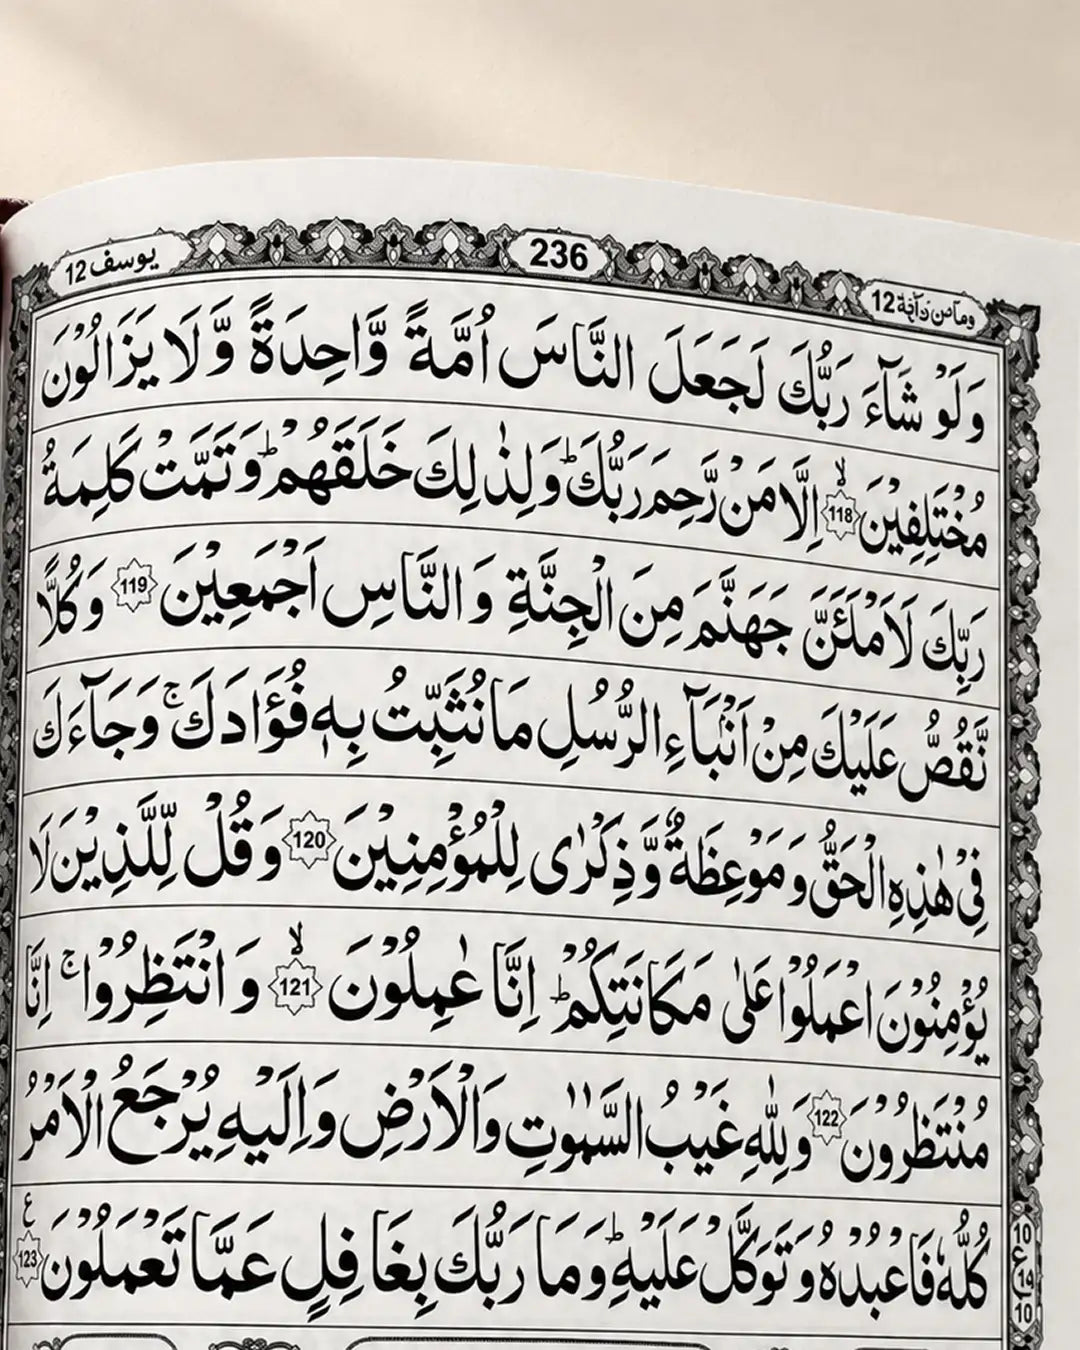 يوسف 12
236
ومامن دآبة 12
وَلَوْ شَآءَ رَبُّكَ لَجَعَلَ النَّاسَ اُمَّةً وَّاحِدَةً وَّلَا يَزَالُوْنَ
مُخْتَلِفِيْنَ ۙ 118 اِلَّا مَنْ رَّحِمَ رَبُّكَ ؕ وَلِذٰلِكَ خَلَقَهُمْ ؕ وَتَمَّتْ كَلِمَةُ
رَبِّكَ لَاَمْلَـَٔنَّ جَهَنَّمَ مِنَ الْجِنَّةِ وَالنَّاسِ اَجْمَعِيْنَ 119 وَكُلًّا
نَّقُصُّ عَلَيْكَ مِنْ اَنْۢبَآءِ الرُّسُلِ مَا نُثَبِّتُ بِهٖ فُؤَادَكَ ۚ وَجَآءَكَ
فِيْ هٰذِهِ الْحَقُّ وَمَوْعِظَةٌ وَّذِكْرٰى لِلْمُؤْمِنِيْنَ 120 وَقُلْ لِّلَّذِيْنَ لَا
يُؤْمِنُوْنَ اعْمَلُوْا عَلٰى مَكَانَتِكُمْ ؕ اِنَّا عٰمِلُوْنَ ۙ 121 وَانْتَظِرُوْا ۚ اِنَّا
مُنْتَظِرُوْنَ 122 وَلِلّٰهِ غَيْبُ السَّمٰوٰتِ وَالْاَرْضِ وَاِلَيْهِ يُرْجَعُ الْاَمْرُ
كُلُّهٗ فَاعْبُدْهُ وَتَوَكَّلْ عَلَيْهِ ؕ وَمَا رَبُّكَ بِغَافِلٍ عَمَّا تَعْمَلُوْنَ 123 ع
10
ع
14
10